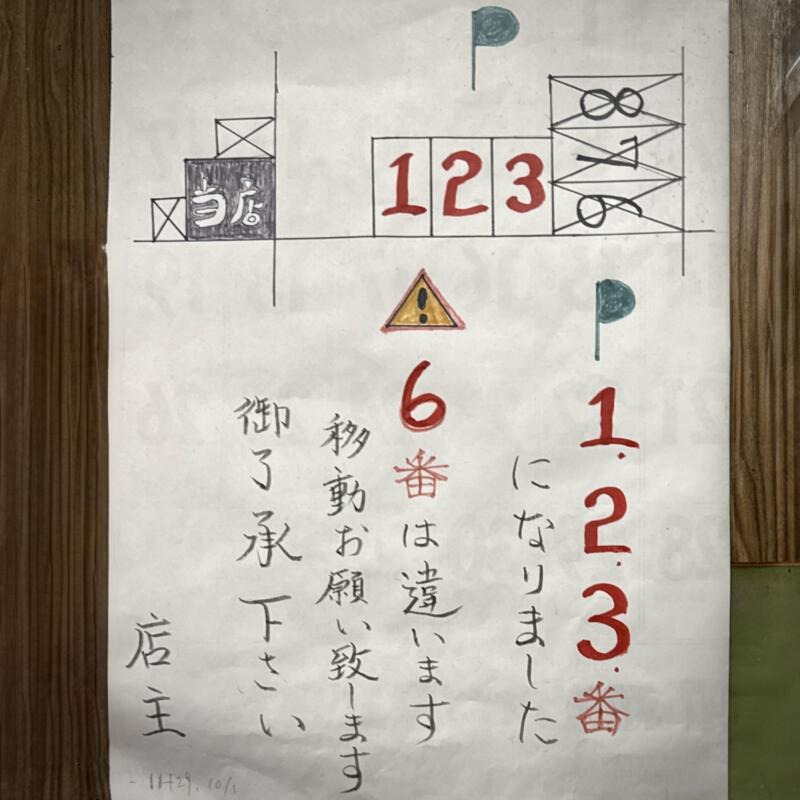 P
当店
1 2 3
8
7
6
P
1.2.3.番
になりました
6番は違います
移動お願い致します
御了承下さい
店主
H29.10/1